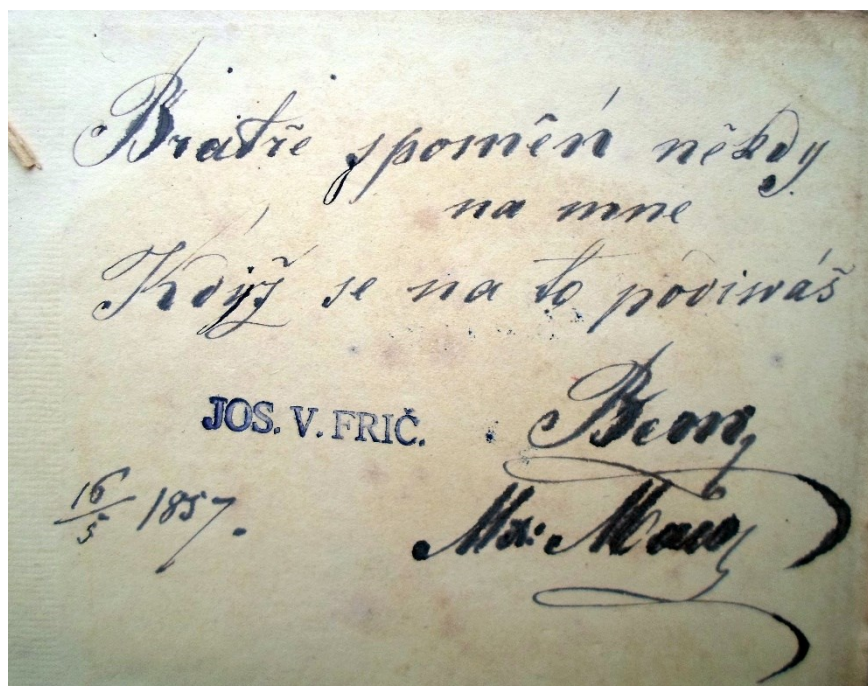 Bratře spoměń někdy
na mne
Když se na to pódiwáš
JOS. V. FRIČ.
Bem
16/5 1857.